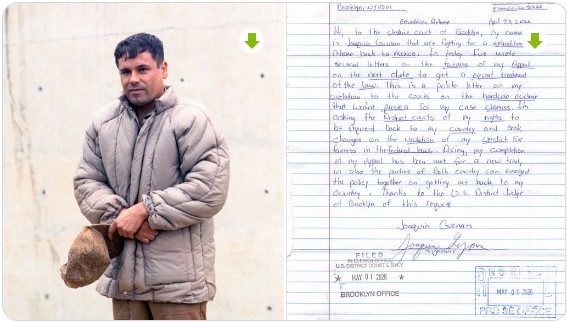 Brooklyn, NY 11201
April 23, 2026
Hi, to the district court of Brooklyn, my name
is Joaquin Guzman that are fighting for a extradition
back to Mexico. In today I've wrote
several letters on the of my Appeal
on the next date, to get a equal treatment
of the law. This is a polite letter on my
violation to the courts on the evidence
that wasn't proved for my case closures. I'm
asking the District courts of my rights to
be request back to my country and seek
changes on the violation of my verdict for
fairness in the federal laws. During, my completion
of my Appeal has been met for a new trial,
in also the parties of Both country can
the policy together on getting me back to my
country. Thanks to the U.S. District Judge
of Brooklyn of this request
Joaquin Guzman
Signature
FILED
IN CLERK'S OFFICE
U.S. DISTRICT COURT E.D.N.Y.
★ MAY 01 2026 ★
BROOKLYN OFFICE
MAY 01 2026
PRO SE OFFICE